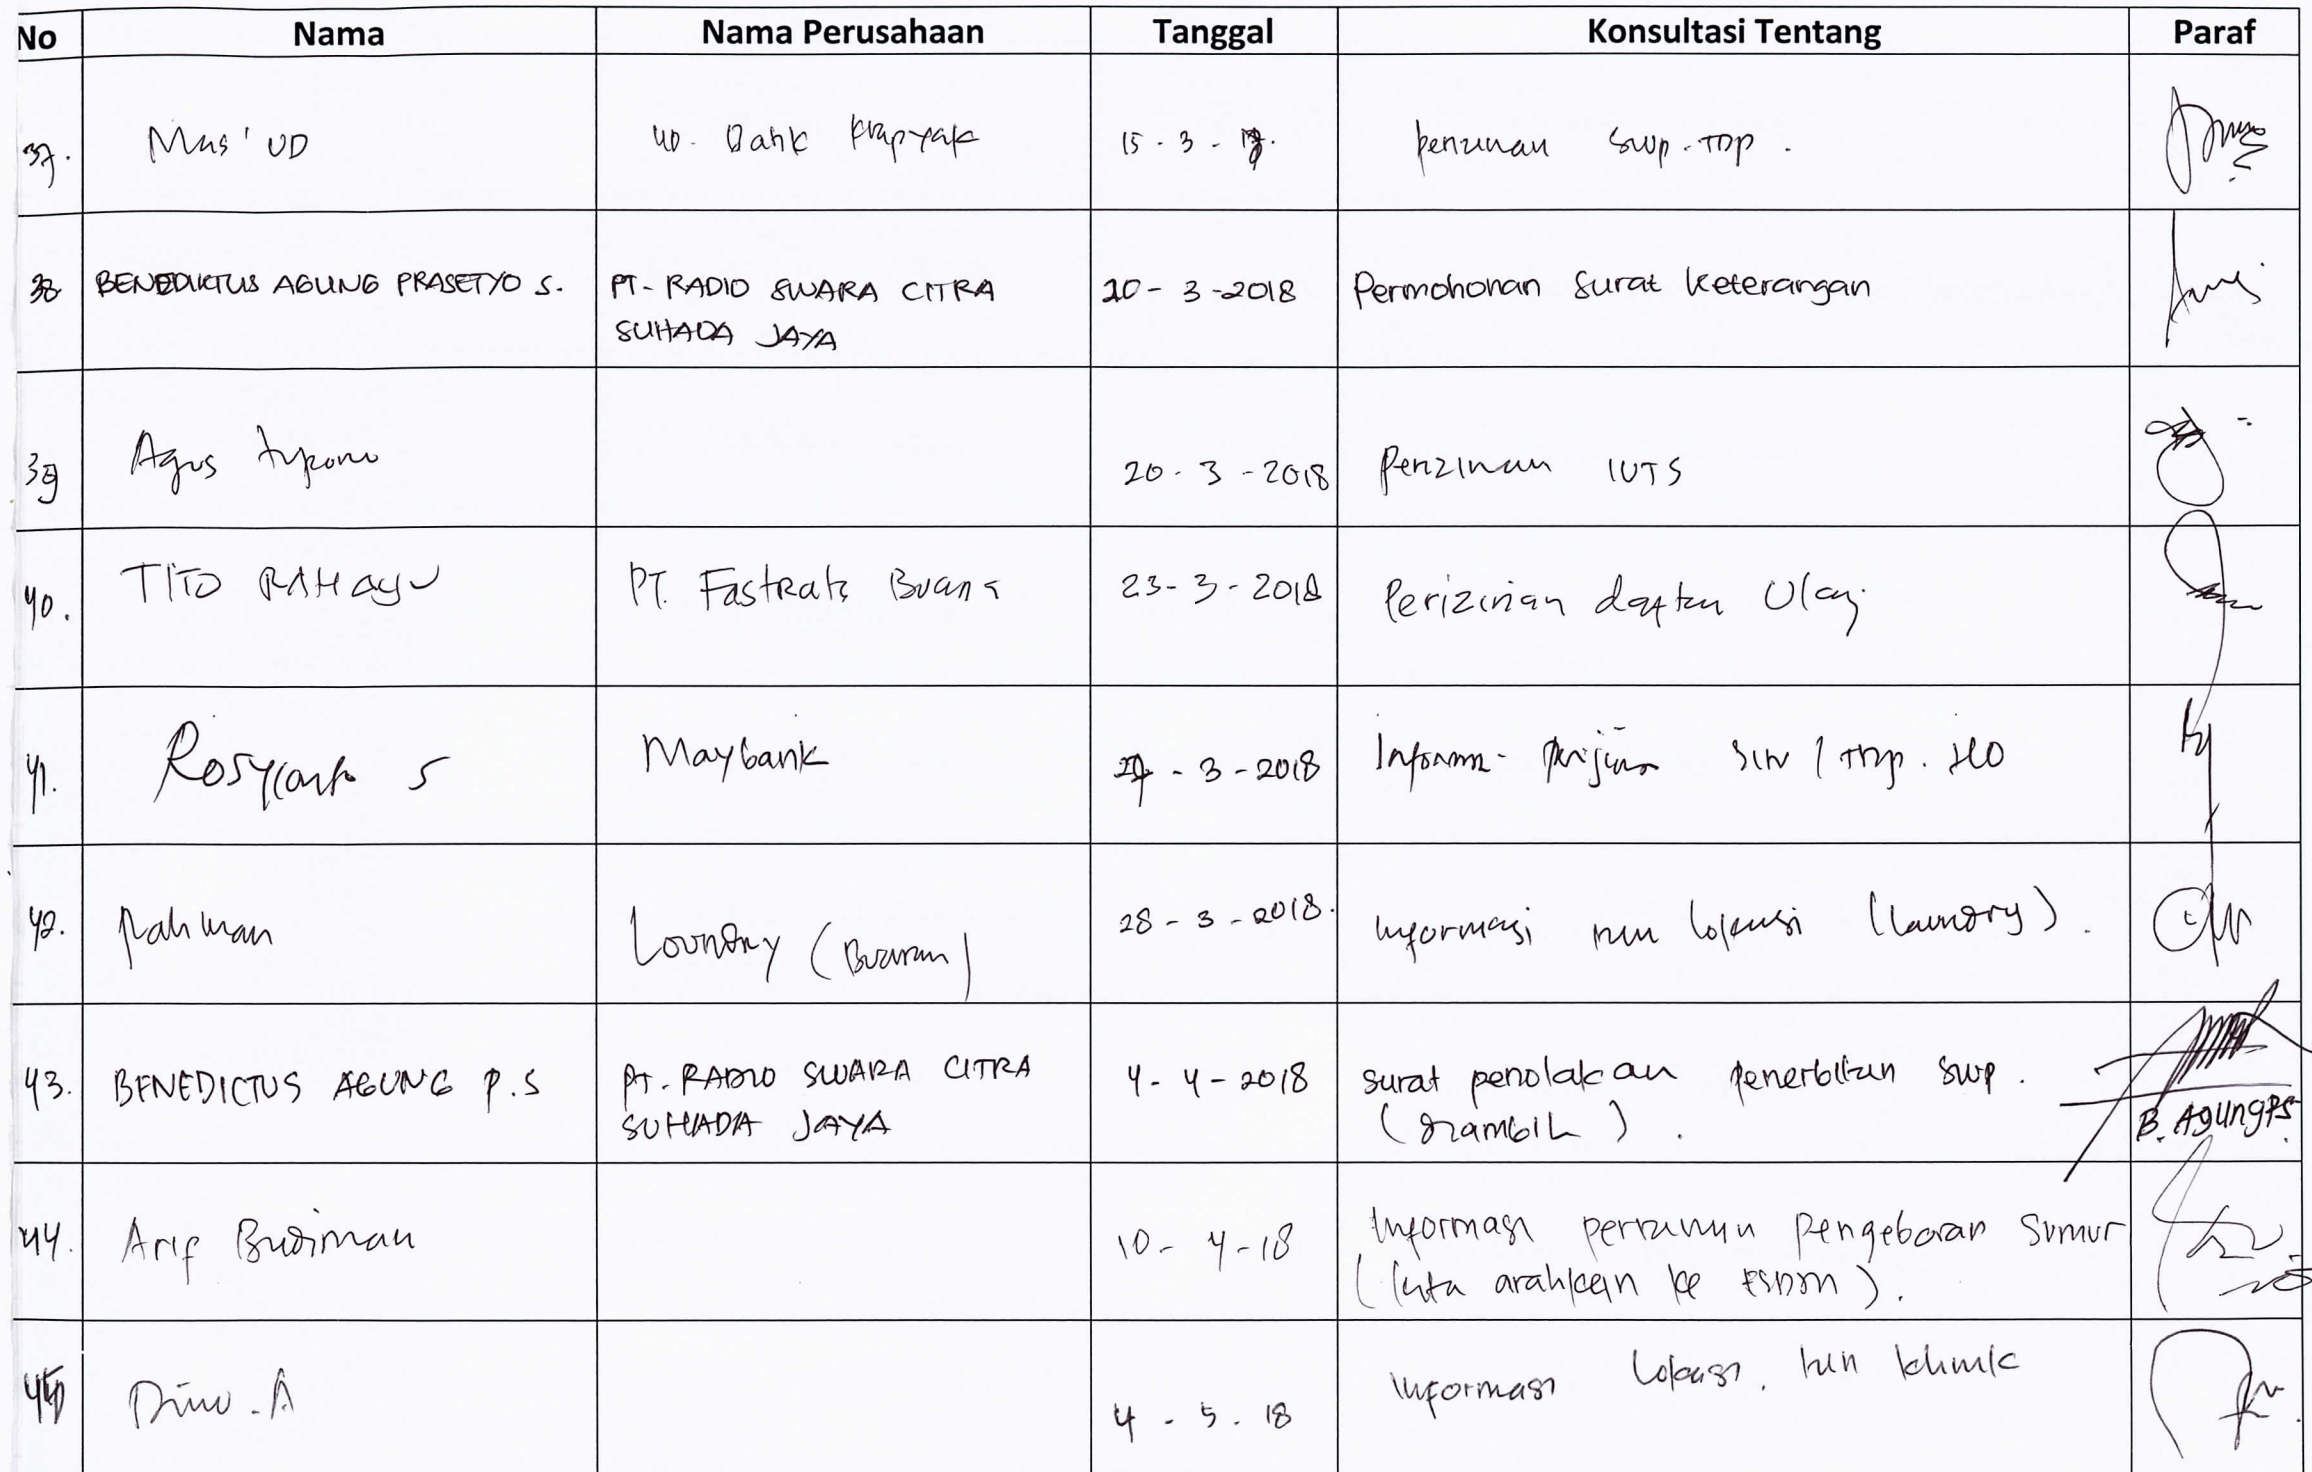 No Nama Nama Perusahaan Tanggal Konsultasi Tentang Paraf
37. Mas'UD UD. Batik Krapyak 15 - 3 - perizinan SIUP-TDP.
38 BENEDIKTUS AGUNG PRASETYO S. PT. RADIO SWARA CITRA 20 - 3 - 2018 Permohonan Surat Keterangan
SUHADA JAYA
39 Agus 20 - 3 - 2018 Perizinan IUTS
40. TITO RAHAyU PT. Fastrata Buana 23 - 3 - 2018 Perizinan daftar Ulang
41. S Maybank 27 - 3 - 2018 SIUP / TDP. HO
42. Rahman Loundry (Buaran) 28 - 3 - 2018. Informasi izin lokasi (laundry).
43. BENEDICTUS AGUNG P.S PT. RADIO SWARA CITRA 4 - 4 - 2018 surat penolakan penerbitan SIUP.
SUHADA JAYA (diambil). B. AgungPS
44. Arif Budiman 10 - 4 - 18 Informasi perizinan Pengeboran Sumur
(kita arahkan ke ESDM).
45 A 4 - 5 - 18 Informasi Lokasi. izin klinik